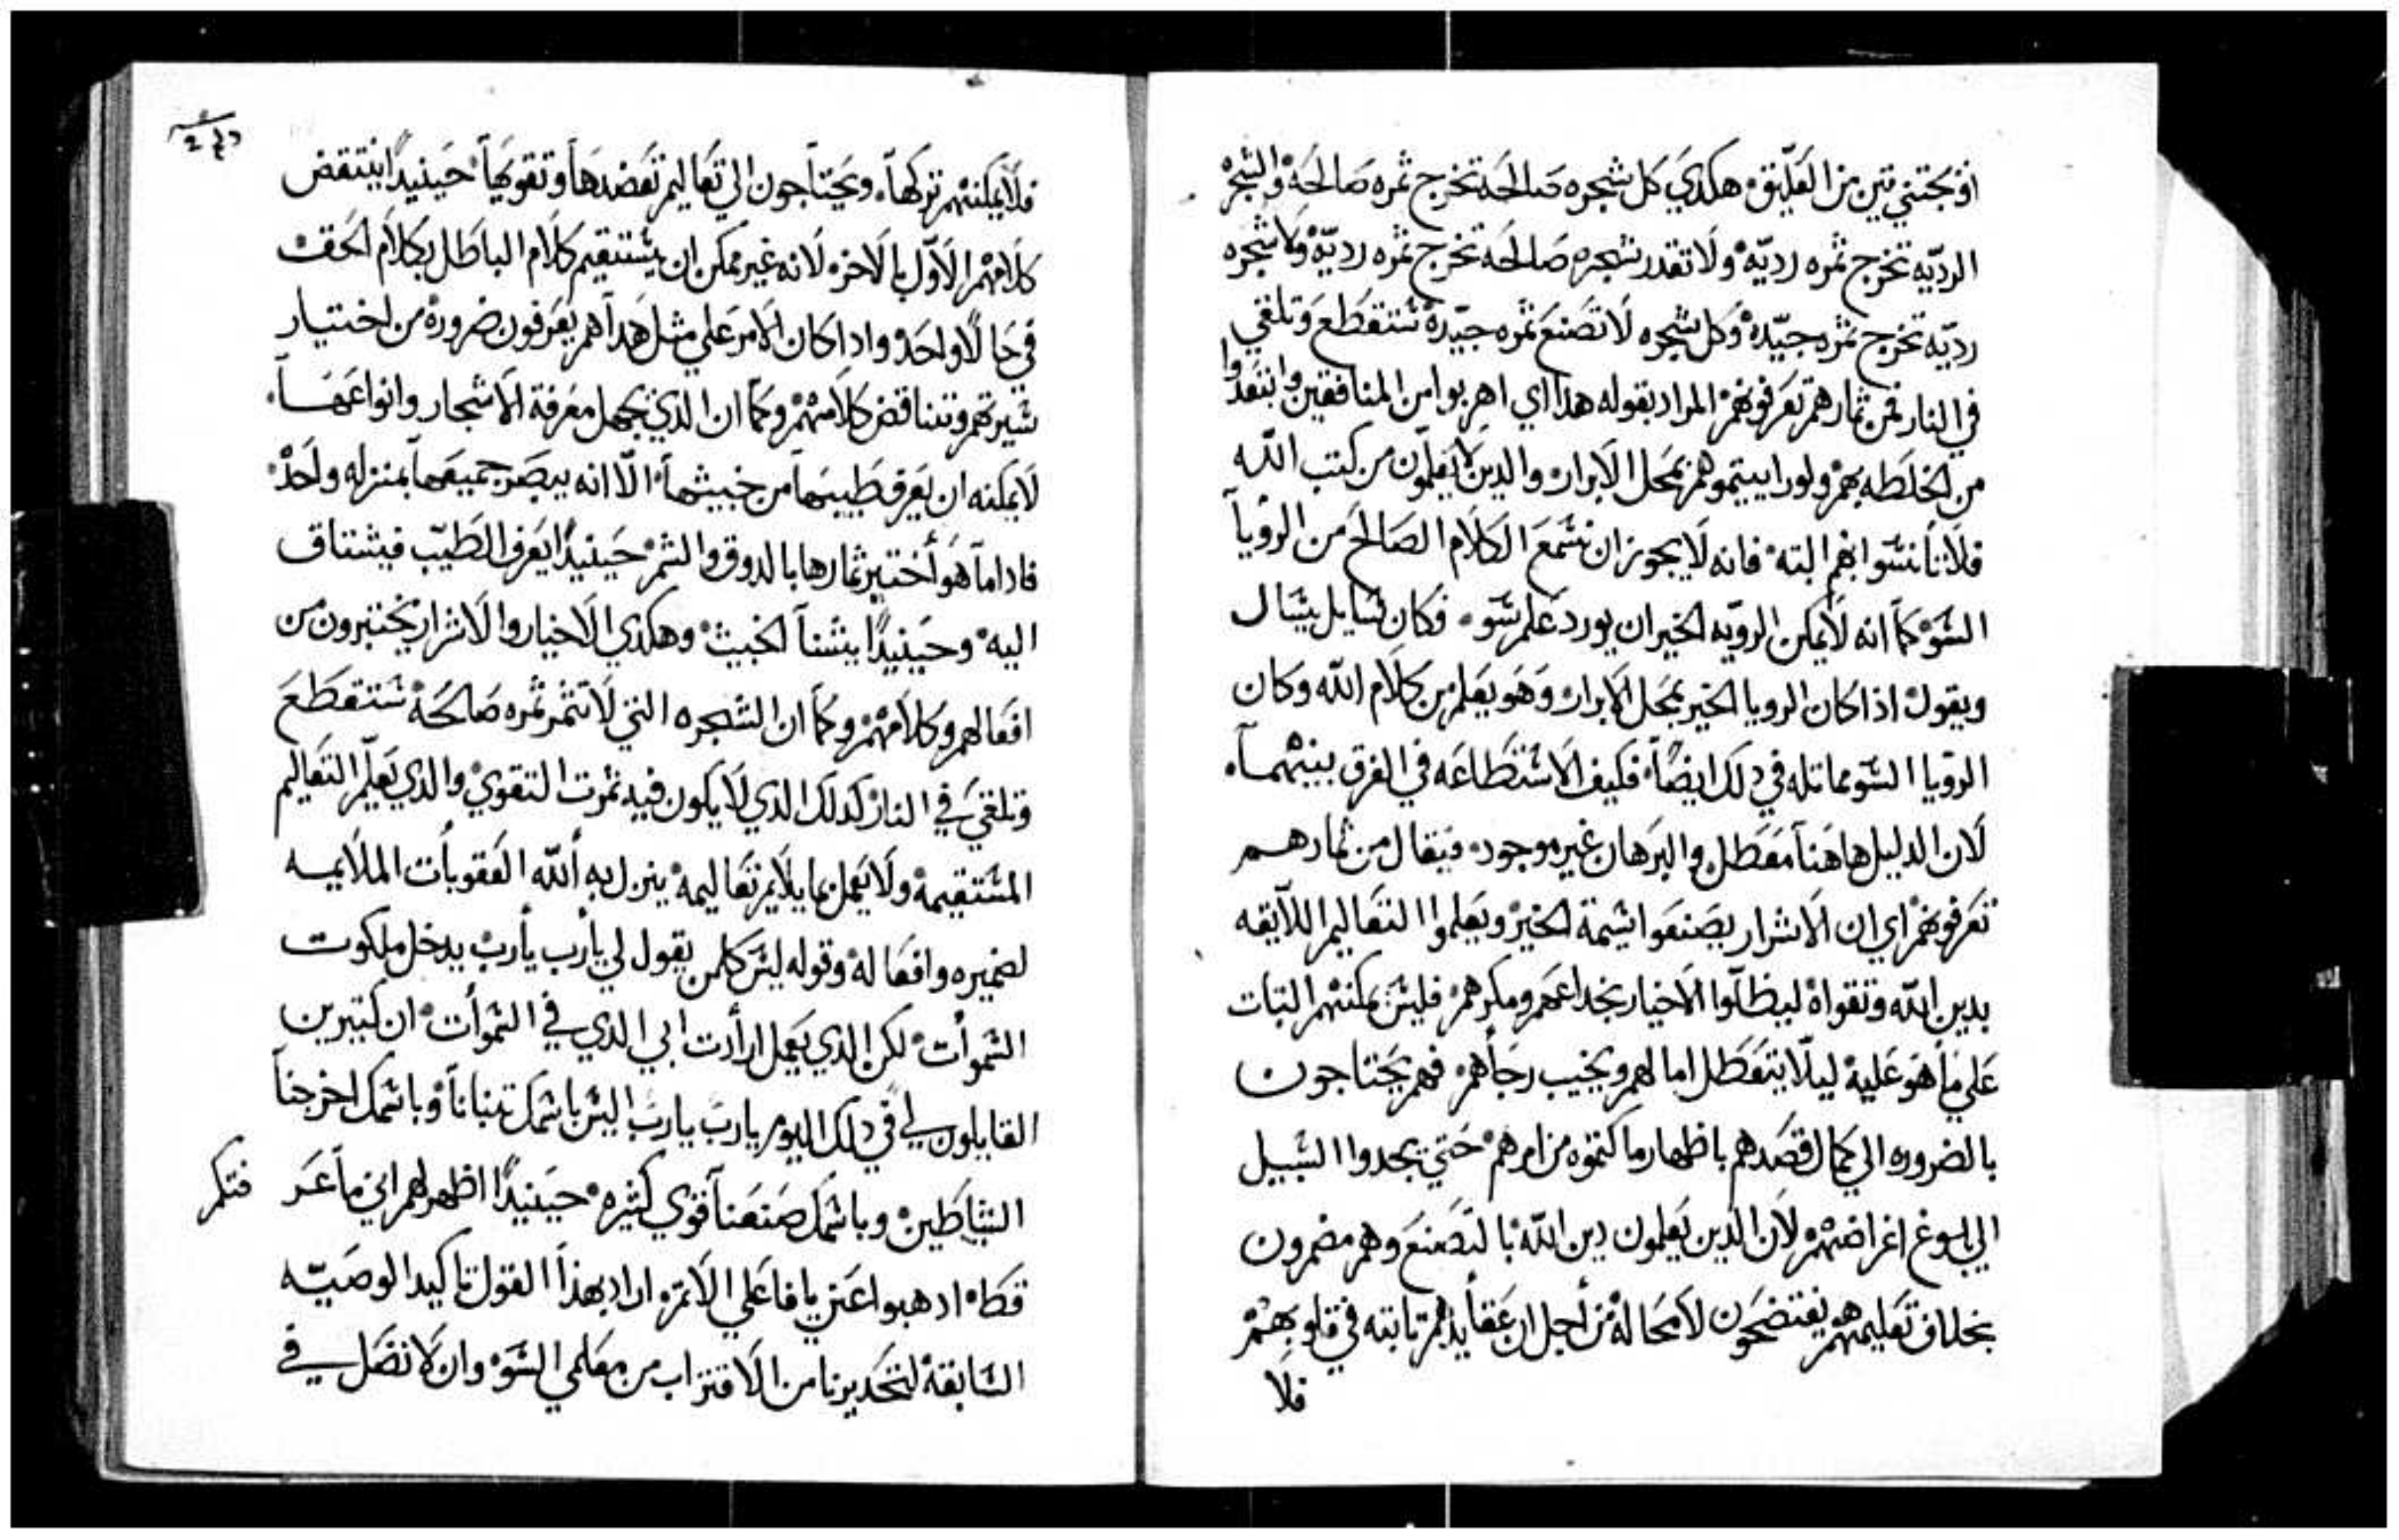 او يجتني تين من العليق هكدي كل شجره صالحه تخرج ثمره صالحه والشجره
الرديه تخرج ثمره رديه ولا تقدر شجره صالحه تخرج ثمره رديه ولا شجره
رديه تخرج ثمره جيده وكل شجره لا تصنع ثمره جيده تنقطع وتلقي
في النار فمن ثمارهم تعرفونهم المراد بقوله هدا اي اهربوا من المنافقين وابتعدوا
من الخلطه بهم ولو راييتموهم بمحل الابرار والدين يعلمون من كتب الله
فلا تانسوا بهم البته فانه لا يجوز ان نسمع الكلام الصالح من الرويا
السو كما انه لا يمكن الرويه الخير ان يورد علم سو فكان سايل يسال
ويقول ادا كان الرويا الخير بمحل الابرار وهو يعلم من كلام الله وكان
الرويا السو مماتله في دلك ايضا فكيف الاستطاعه في الفرق بينهما
لان الدليل هاهنا معطل والبرهان غير موجود فيقال من ثمارهم
تعرفونهم اي ان الاشرار يصنعوا شيمة الخير ويعلموا التعاليم اللايقه
بدين الله وتقواه ليظلوا الاخيار بخداعهم ومكرهم فليس يمكنهم التبات
علي ما هو عليه ليلا يتعطل امالهم ويخيب رجاهم فهم يحتاجون
بالضروره الي كمال قصدهم باظهار ما كتموه من امرهم حتي يجدوا السبيل
الي بلوغ اغراضهم لان الدين يعلمون دين الله بالتصنع وهم مضمرون
بخلاف تعليمهم يفتضحون لا محاله من اجل ان عقايدهم تابته في قلوبهم
فلا
فلا يمكنهم تركها ويحتاجون الي تعاليم تعضدها وتقويها حينيدا ينتقض
كلامهم الاول بالاخر لانه غير ممكن ان يستقيم كلام الباطل بكلام الحق
في حالا واحد وادا كان الامر علي مثل هدا هم يعرفون ضروره من اختيار
سيرتهم وتناقض كلامهم وكما ان الدي يجهل معرفة الاشجار وانواعها
لا يمكنه ان يعرف طيبها من خبيثها الا انه يبصر جميعها بمنزله واحد
فادا ما هو اختبر ثمارها بالدوق والشم حينيدا يعرف الطيب فيشتاق
اليه وحينيدا يشنا الخبيث وهكدي الاخيار والاشرار يختبرون من
افعالهم وكلامهم وكما ان الشجره التي لا تثمر ثمره صالحه تنقطع
وتلقي في النار كدلك الدي لا يكون فيه ثمرت التقوي والدي يعلم التعاليم
المستقيمه ولا يعمل بما يلايم تعاليمه ينزل به الله العقوبات الملايمه
لضميره وافعاله وقوله ليس كلمن يقول لي يارب يارب يدخل ملكوت
السموات لكن الدي يعمل ارادت ابي الدي في السموات ان كتيرين
القايلون لي في دلك اليوم يارب يارب اليس باسمك تنبانا وباسمك اخرجنا
الشياطين وباسمك صنعنا قوي كثيره حينيدا اظهر لهم اني ما عر فتكم
قط ادهبوا عني يا فاعلي الاتم اراد بهدا القول تاكيد الوصيه
السابقه لتحديرنا من الاقتراب من معلمي السو وان لا نضل في